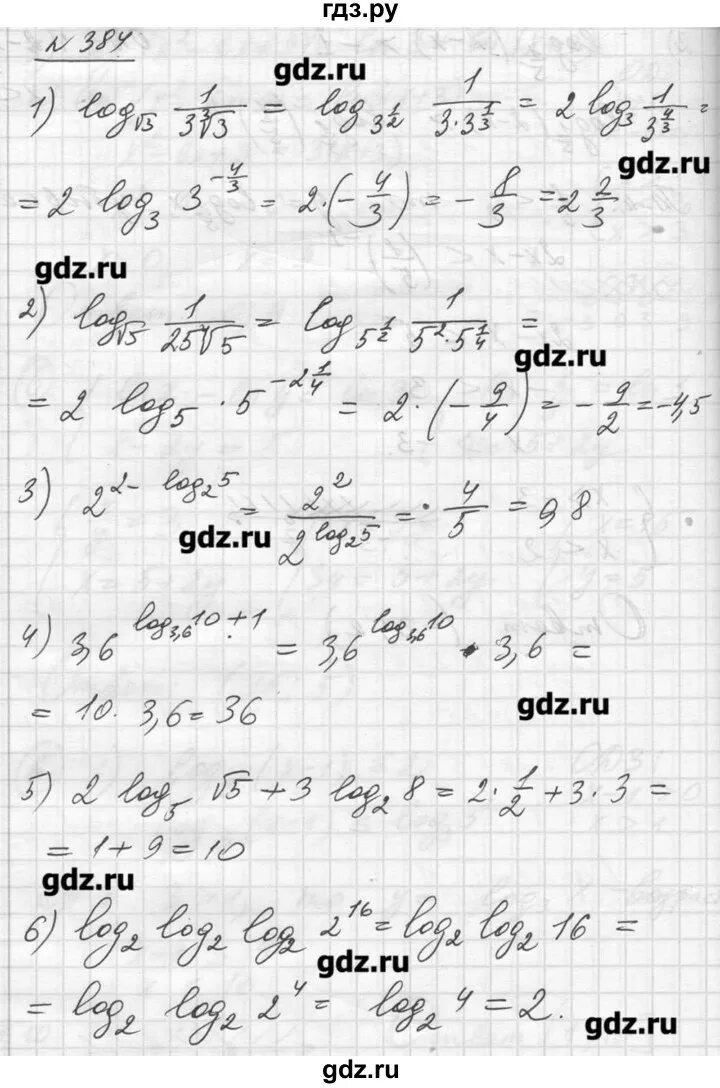 гдз.ру
№ 384
gdz.ru
1) log_{√3} 1/(3∛3) = log_{3^{1/2}} 1/(3·3^{1/3}) = 2 log_3 1/3^{4/3} =
gdz.ru
= 2 log_3 3^{-4/3} = 2·(-4/3) = -8/3 = -2 2/3
gdz.ru
2) log_{√5} 1/(25∜5) = log_{5^{1/2}} 1/(5^2·5^{1/4}) =
gdz.ru
= 2 log_5 · 5^{-2 1/4} = 2·(-9/4) = -9/2 = -4,5
3) 2^{2-log_2 5} = 2^2/2^{log_2 5} = 4/5 = 0,8
gdz.ru
4) 3,6^{log_{3,6} 10+1} = 3,6^{log_{3,6} 10} · 3,6 =
= 10·3,6 = 36
gdz.ru
5) 2 log_5 √5 + 3 log_2 8 = 2·1/2 + 3·3 =
= 1 + 9 = 10
gdz.ru
6) log_2 log_2 log_2 2^{16} = log_2 log_2 16 =
gdz.ru
= log_2 log_2 2^4 = log_2 4 = 2.
gdz.ru
gdz.ru